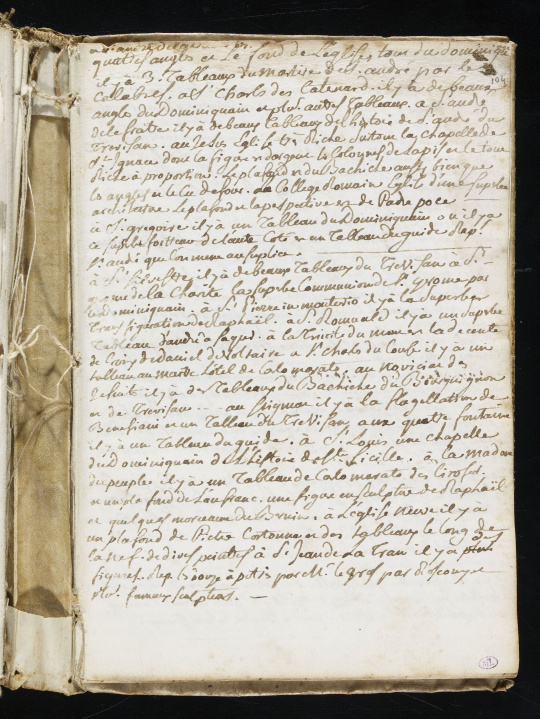 quatres angles et le fond de l'eglises tour du Dominiq
il y a 3. Tableaux du martire de St. andré par le
Callabres. a St Charles des Catenard. il y a de beaux
angles du Dominiquain et plus. autres tableaux. a St. andre
de le fratte il y a de beaux tableaux de l'histoire de St. andre du
Trevisane. au Jesus Eglise très Riche surtout la chapelle de
St. Ignace dont la figure est d'argent les Colonnes de lapis et le tout
Riche à proportion. le plafond est du Bachiche aussi bien que
les angles et le Cu de four. au College Romain Eglise d'une superbe
architecture le plafond et la perspective est de Padre poce
a St. gregoire il y a un Tableau du Dominiquain ou il y a
de l'autre Coté et un Tableau du guide Rep.
St. andré que l'on mene au suplice.
a St. Silvestre il y a de beaux Tableaux du Trevisan a St.
de la Charité la superbe Communion de St. Gerome par
le dominiquain. a St. Pierre in montorio il y a la Superbe
Transfiguration de Raphaël. a St. Romuald il y a un superbe
Tableau d'andré a Saqui. a la Trinité du mont est la decente
de Croix de daniel de Voltaire a St. Charles du Cours il y a un
tableau au maitre hotel de Calo marate. au novicia des
Jesuit il y a de Tableaux du Bachiche du Bourguignon
et de Trevisan... au Seigneur il y a la flagellation de
et un Tableau du Trevisan, aux quatre fontaine
il y a un Tableau du guide. à St. Louis une chapelle
du Dominiquain de l'histoire de Ste. Cicille. à la madone
du peuple il y a un Tableau de Calo marate des
et un pla fond de Lanfranc. une figure en sculpture de Raphaël
et quelques morceaux du Bernin. à L'eglise neuve il y a
un plafond de Pietre Cortonne et des tableaux le long de
la nef. de divers peintres à St. Jean de La Tran il y a
figures Rep. les 12 apotres par Mr. le gros par
fameux sculpteurs. —
104